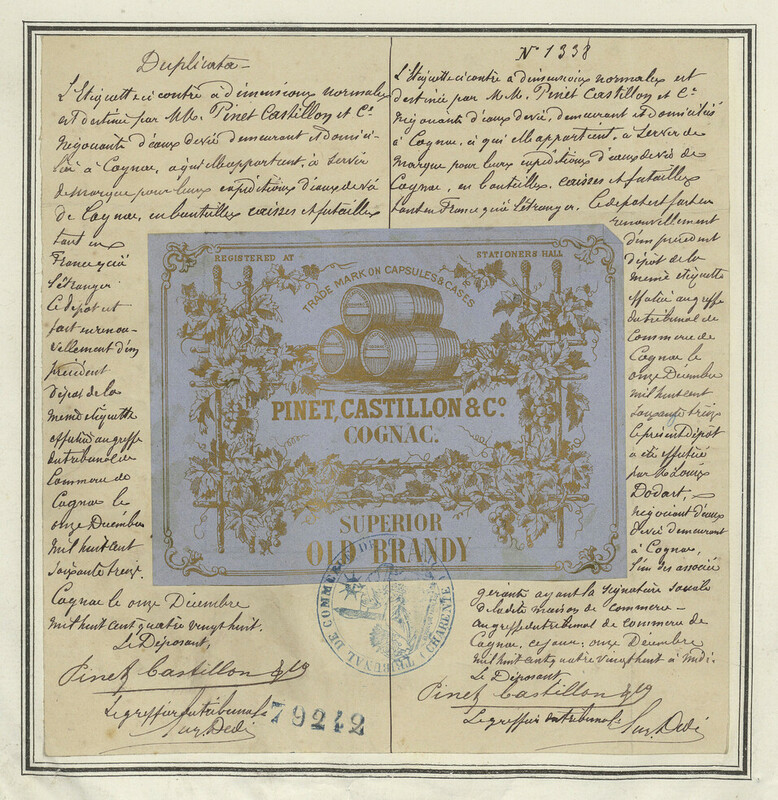 Duplicata
L'Etiquette ci contre à dimensions normales
est destinée par MM. Pinet Castillon et Cie
négociants d'eaux de vie demeurant et domici-
liés à Cognac, à qui elle appartient, à servir
de marque pour leurs expéditions d'eaux de vie
de Cognac, en bouteilles caisses et futailles
tant en
France qu'à
l'étranger.
Ce dépôt est
fait en renou-
vellement d'un
précédent
dépôt de la
même étiquette
effectué au greffe
du tribunal de
Commerce de
Cognac le
onze Décembre
mil huit cent
soixante treize.
Cognac le onze Décembre
mil huit cent quatre vingt huit.
Le Déposant,
Pinet Castillon & Co
Le greffier du tribunal
79242
N° 1338
L'Etiquette ci contre à dimensions normales est
destinée par M.M. Pinet Castillon et Cie
négociants d'eaux de vie, demeurant et domiciliés
à Cognac, à qui elle appartient, à servir de
marque pour leurs expéditions d'eaux de vie de
Cognac, en bouteilles, caisses et futailles
tant en France qu'à l'étranger. Ce dépôt est fait en
renouvellement
d'un précédent
dépôt de la
même étiquette
effectué au greffe
du tribunal de
Commerce de
Cognac le
onze Décembre
mil huit cent
soixante treize
le présent dépôt
a été effectué
par M. Louis
Dodart,
négociant d'eaux
de vie demeurant
à Cognac,
l'un des associés
gérants ayant la signature sociale
de la dite maison de commerce
au greffe du tribunal de commerce de
Cognac, ce jour, onze Décembre
mil huit cent quatre vingt huit à midi.
Le Déposant
Pinet Castillon & Co
Le greffier du tribunal
REGISTERED AT
STATIONERS HALL
TRADE MARK ON CAPSULES & CASES
PINET, CASTILLON & Co.
COGNAC.
SUPERIOR
OLD BRANDY
TRIBUNAL DE COMMERCE
CHARENTE